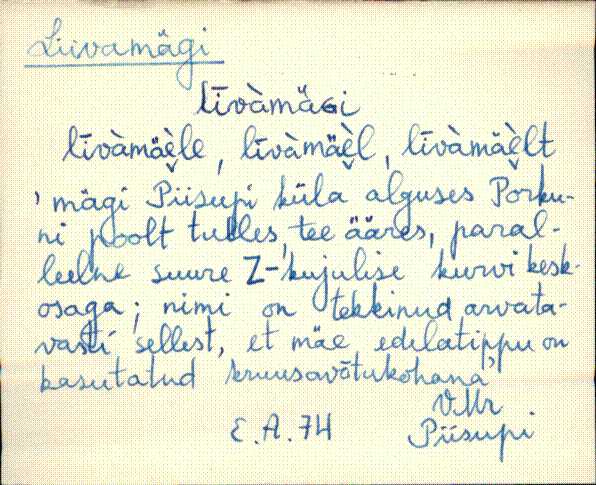 Liivamägi
līvàmäGi
līvàmäè̬le, līvàmäè̬l, līvàmäè̬lt
'mägi Piisupi küla alguses Porku-
ni poolt tulles, tee ääres, paral-
leelne suure Z-kujulise kurvi kesk-
osaga; nimi on tekkinud arvata-
vasti sellest, et mäe edelatippu on
kasutatud kruusavõtukohana'
VMr
E.A.74 Piisupi